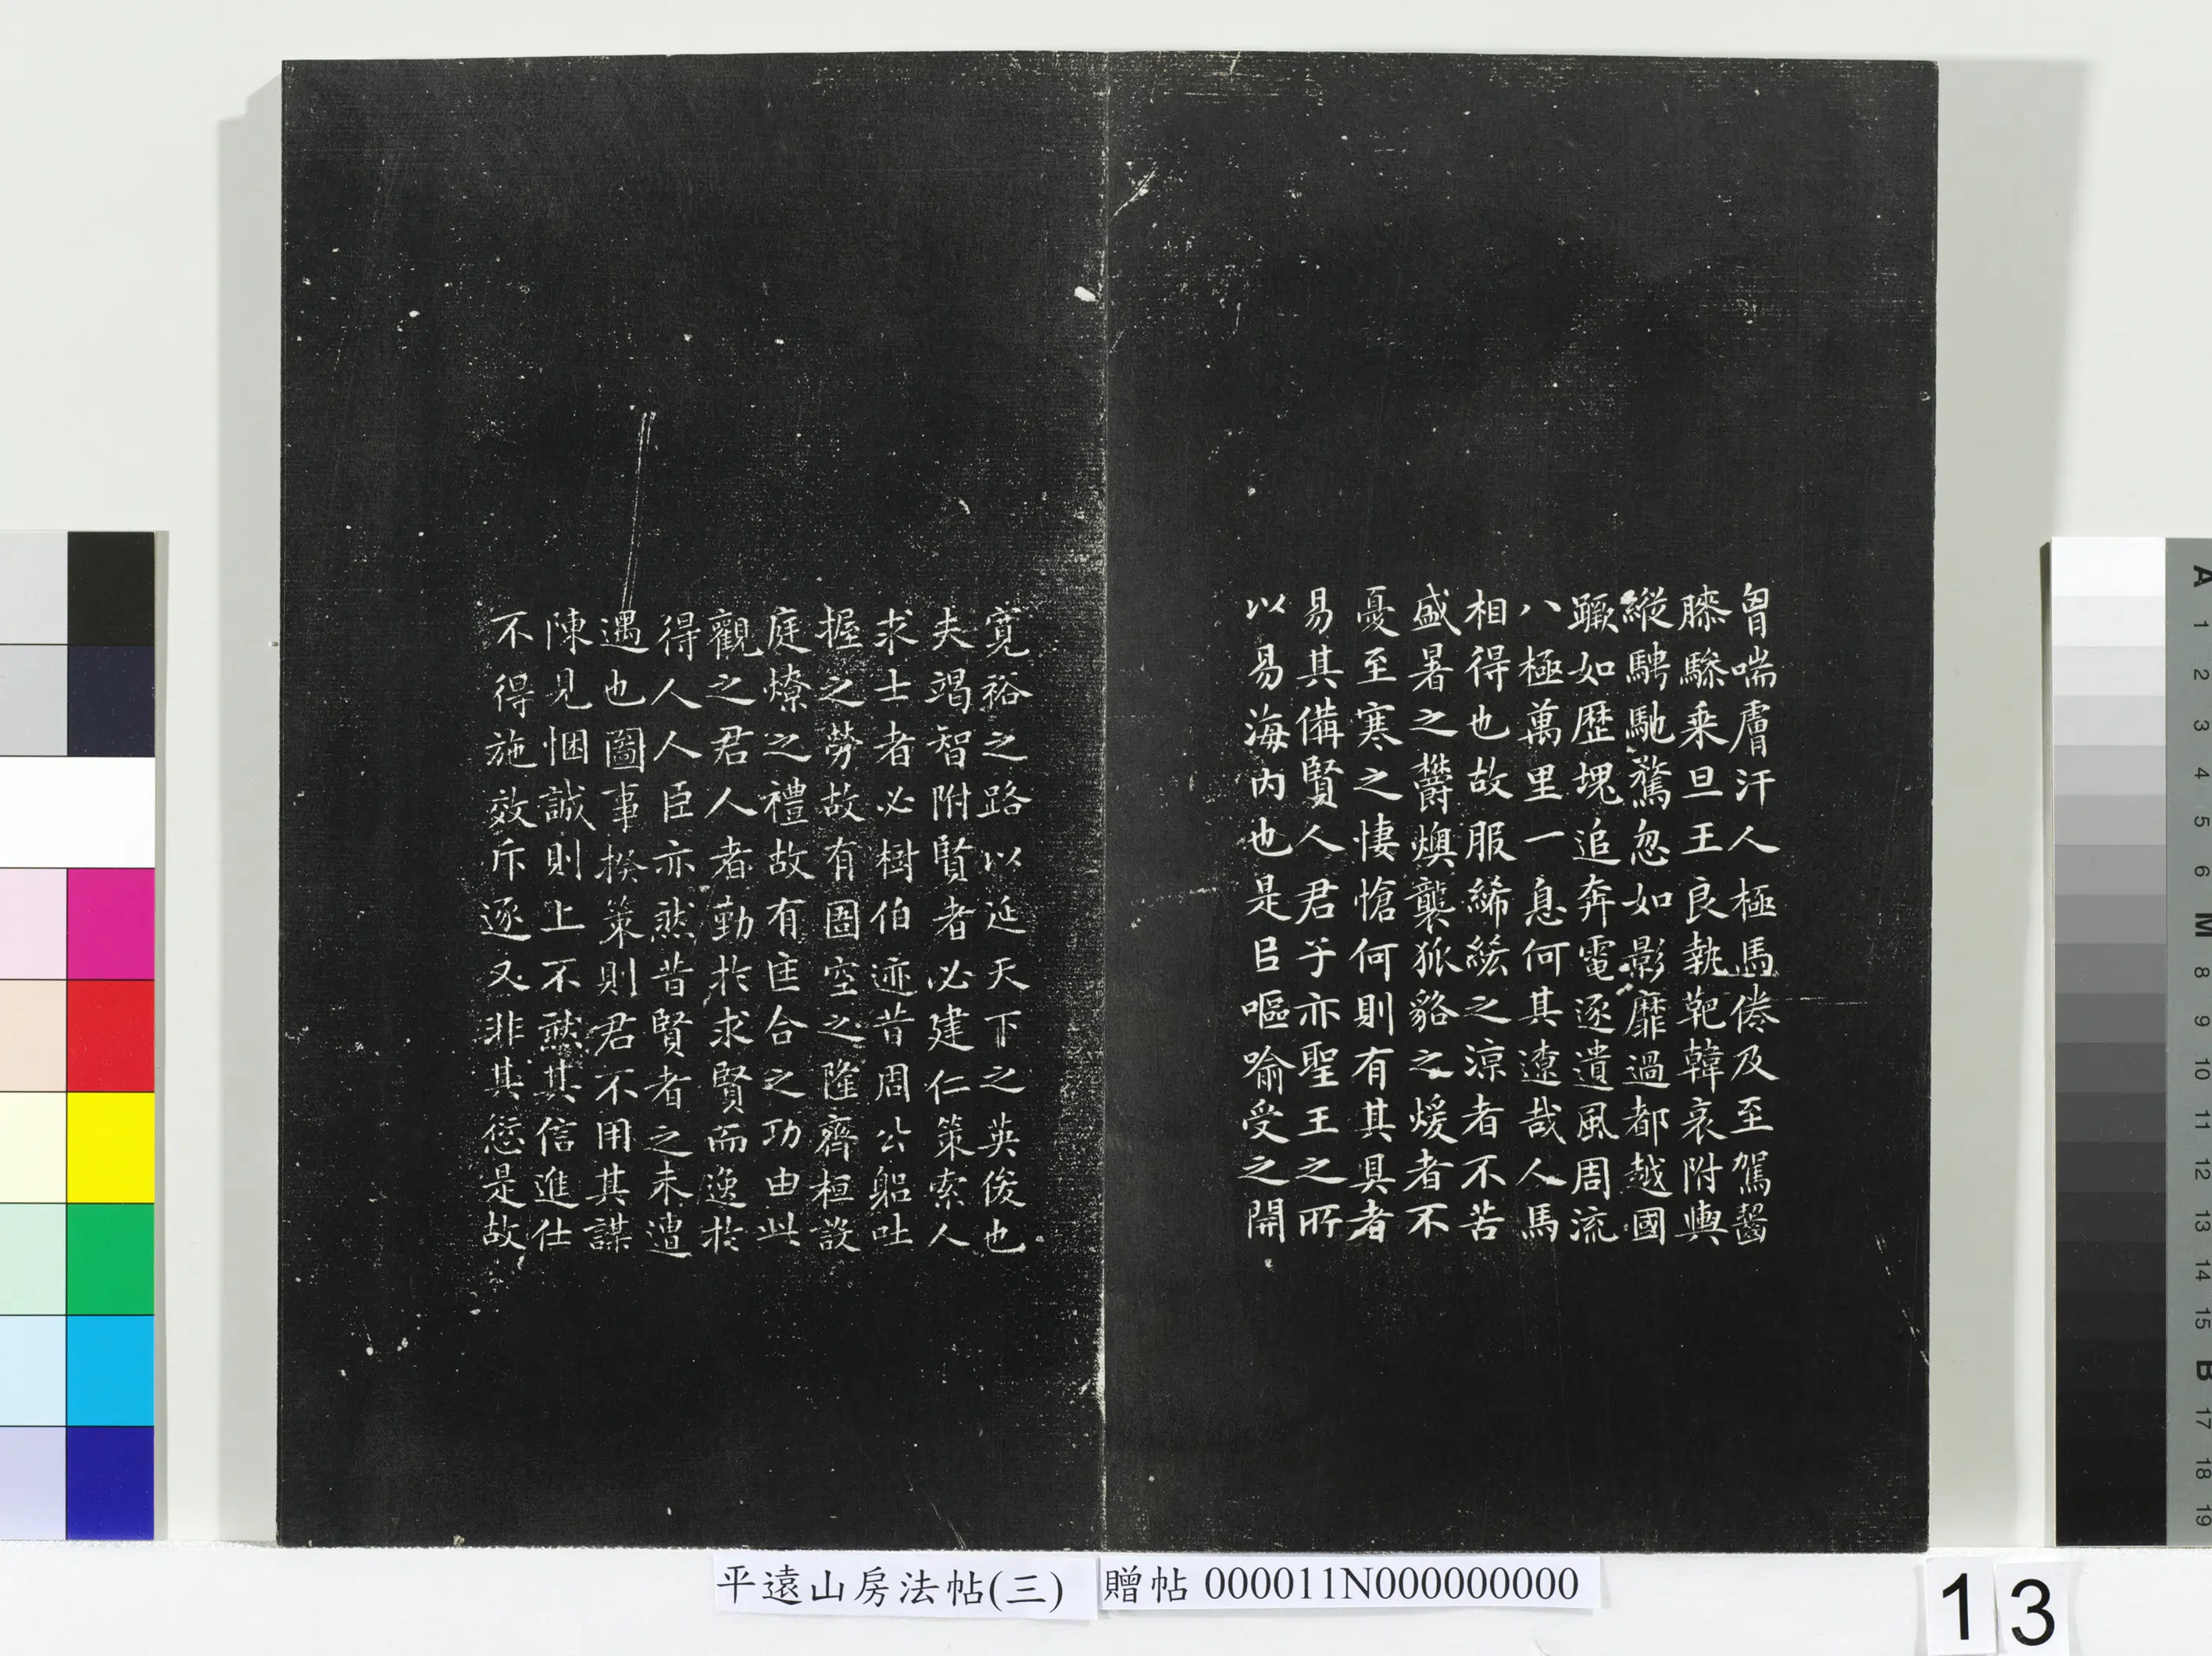 匈喘膚汗人極馬倦及至駕齧
膝驂乘旦王良執靶韓哀附輿
縱騁馳騖忽如影靡過都越國
蹶如歷塊追奔電逐遺風周流
八極萬里一息何其遼哉人馬
相得也故服絺綌之涼者不苦
盛暑之欝燠襲狐貉之煖者不
憂至寒之悽愴何則有其具者
易其備賢人君子亦聖王之所
以易海內也是㠯嘔喻受之開
寬裕之路以延天下之英俊也
夫竭智附賢者必建仁策索人
求士者必樹伯迹昔周公躳吐
握之勞故有圄空之隆齊桓設
庭燎之禮故有匡合之功由此
觀之君人者勤於求賢而逸於
得人人臣亦然昔賢者之未遭
遇也圖事揆策則君不用其謀
陳見悃誠則上不然其信進仕
不得施效斥逐又非其愆是故
平遠山房法帖(三)
贈帖 000011N000000000
13
A 1 2 3 4 5 6 M 8 9 10 11 12 13 14 15 B 17 18 19